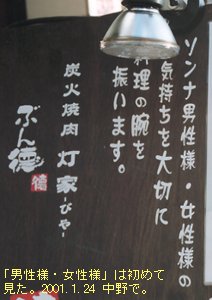 ソンナ男性様・女性様の
気持ちを大切に
料理の腕を
振います。
炭火焼肉 灯家-ひや-
ぶん徳
「男性様・女性様」は初めて
見た。2001.1.24 中野で。